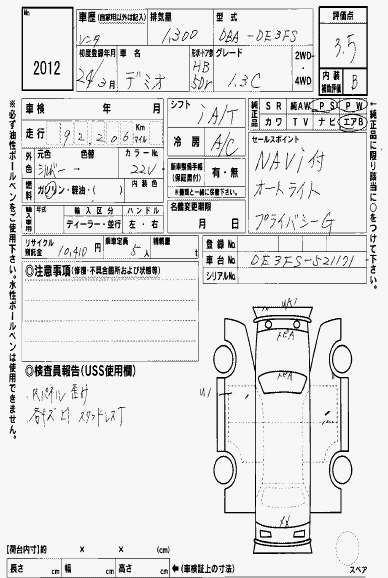 No.
2012
車歴 (自家用以外は記入)
レンタ
排気量
1,300
型式
DBA-DE3FS
初度登録年月
24年3月
車名
デミオ
形状・ドア数
HB
5Dr
グレード
1.3C
2WD・4WD
評価点
3.5
内装
補助評価
B
車検 年 月
走行 92,206 Km マイル
外色 元色 色替 カラーNo.
シルバー → 22V
燃料 ガソリン・軽油・( ) 内装色
輸入車専用 年式 輸入区分 ハンドル
ディーラー・並行 左・右
リサイクル預託金 10,410円
乗車定員 5人
積載量 t
シフト
iA/T
冷房
A/C
新車整備手帳(保証書付) 有・無
※車両と一緒に保管下さい。
名義変更期限
月 日
純正品
SR 純AW PS PW
カワ TV ナビ エアB
セールスポイント
NAVi付
オートライト
プライバシーG
登録No.
車台No. DE3FS-521171
シリアルNo.
※必ず油性ボールペンをご使用下さい。水性ボールペンは使用できません。
※純正品に限り該当に○をつけて下さい。
◎注意事項 (修復・不具合箇所および状態等)
◎検査員報告 (USS使用欄)
Rパネル 歪け
各キズ ヒ スタッドレスT
UK1
トビA
トビA
U1
トビA
【荷台内寸】約 × × (cm)
長さ cm 幅 cm 高さ cm
←(車検証上の寸法)
スペア